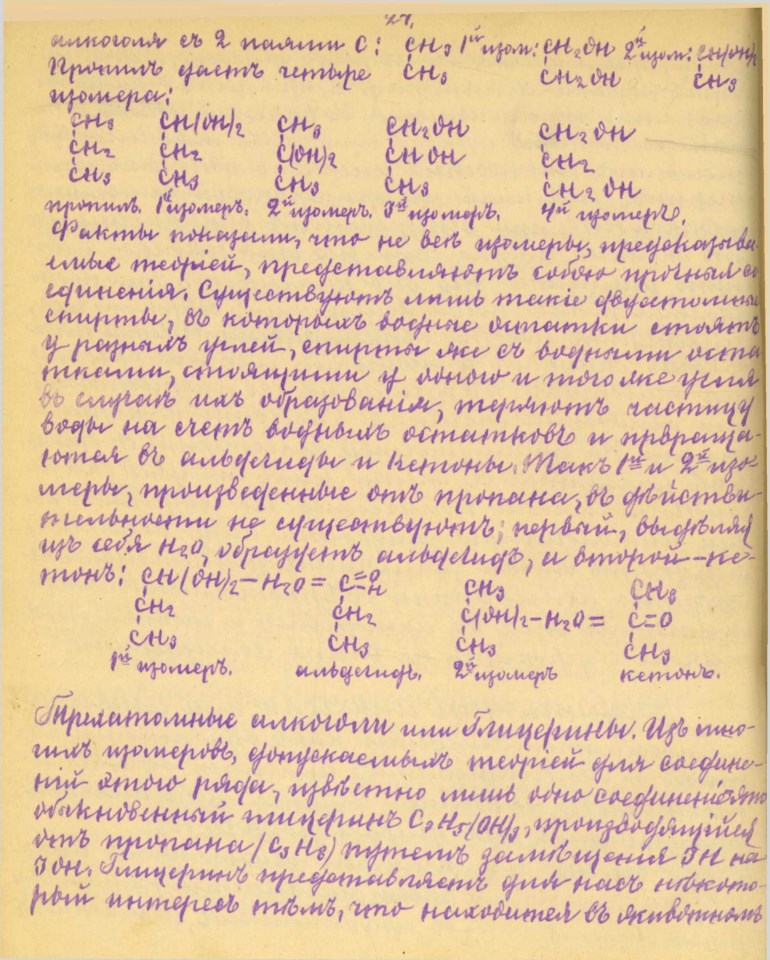 27.
алкоголя съ 2 паями С: CH3 1й изом: CH2OH 2й изом: CH(OH)2
Пропилъ даетъ четыре CH3 CH2OH CH3
изомера:
CH3 CH(OH)2 CH3 CH2OH CH2OH
CH2 CH2 C(OH)2 CHOH CH2
CH3 CH3 CH3 CH3 CH2OH
пропилъ. 1й изомеръ. 2й изомеръ. 3й изомеръ. 4й изомеръ.
Факты показали, что не всѣ изомеры, предсказывае-
емые теоріей, представляютъ собою прочныя со
единенія. Существуютъ лишь такіе двуатомные
спирты, въ которыхъ водные остатки стоятъ
у разныхъ углей, спирты же съ водными оста
тками, стоящими у одного и того же угля
въ случаѣ ихъ образованія, теряютъ частицу
воды на счетъ водныхъ остатковъ и превраща-
ются въ альдегиды и кетоны. Такъ 1й и 2й изо-
меры, произведенные отъ пропана, въ дѣйстви-
тельности не существуютъ; первый, выдѣляя
изъ себя H2O, образуетъ альдегидъ, а второй – ке-
тонъ: CH(OH)2 – H2O = C=O H CH3 CH3
CH2 CH2 C(OH)2 – H2O = C=O
CH3 CH3 CH3 CH3
1й изомеръ. альдегидъ. 2й изомеръ кетонъ.
Трехатомные алкоголи или Глицерины. Изъ мно-
гихъ изомеровъ, допускаемыхъ теоріей для соедине-
ній этого ряда, извѣстно лишь одно соединеніе это
обыкновенный глицеринъ C3H5(OH)3, производящійся
отъ пропана (C3H8) путемъ замѣщенія 3H на
3OH. Глицеринъ представляетъ для насъ нѣкото-
рый интересъ тѣмъ, что находится въ животномъ